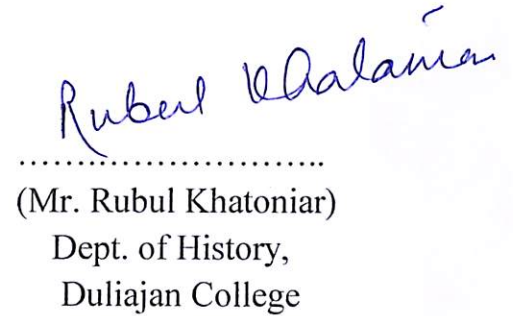 Rubul Khataniar
………………………..
(Mr. Rubul Khatoniar)
Dept. of History,
Duliajan College